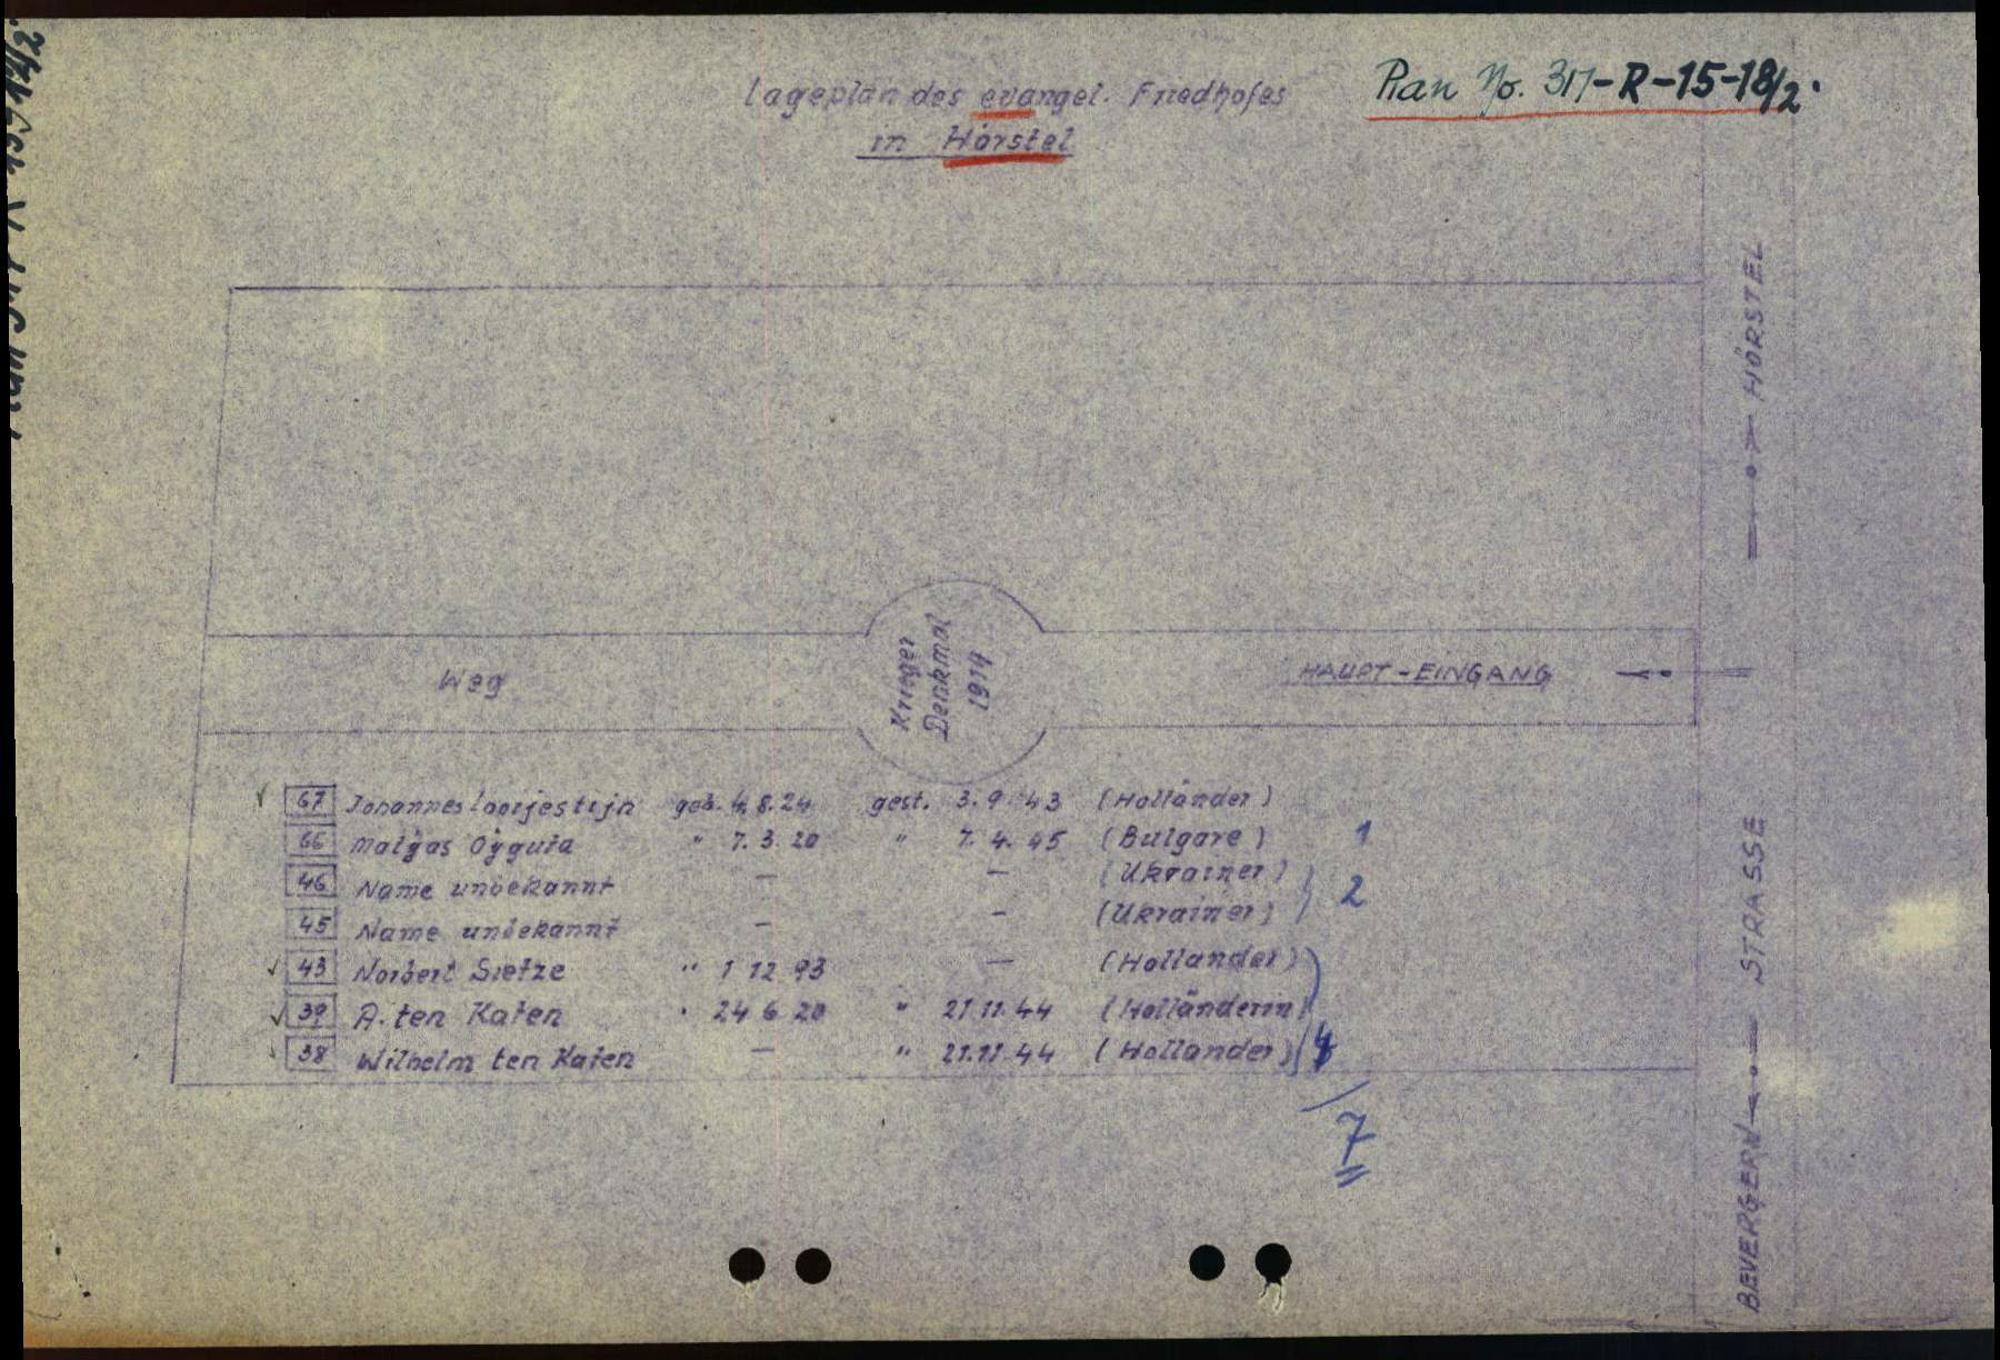 Lageplan des evangel. Friedhofes
in Hörstel
Plan No. 317-R-15-18/2.
HÖRSTEL
Weg
Krieger
Denkmal
1914
HAUPT-EINGANG
67 Johannes geb. 4.8.24 gest. 3.9.43 (Holländer)
66 Malgas Oyguta " 7.3.20 " 7.4.45 (Bulgare) 1
46 Name unbekannt — — (Ukrainer)
45 Name unbekannt — — (Ukrainer) 2
43 Norbert Sietze " 1 12 93 — (Holländer)
39 A. ten Katen " 24 6 20 " 21.11.44 (Holländerin)
38 Wilhelm ten Katen — " 21.11.44 (Holländer) 4
7
STRASSE
BEVERGERN